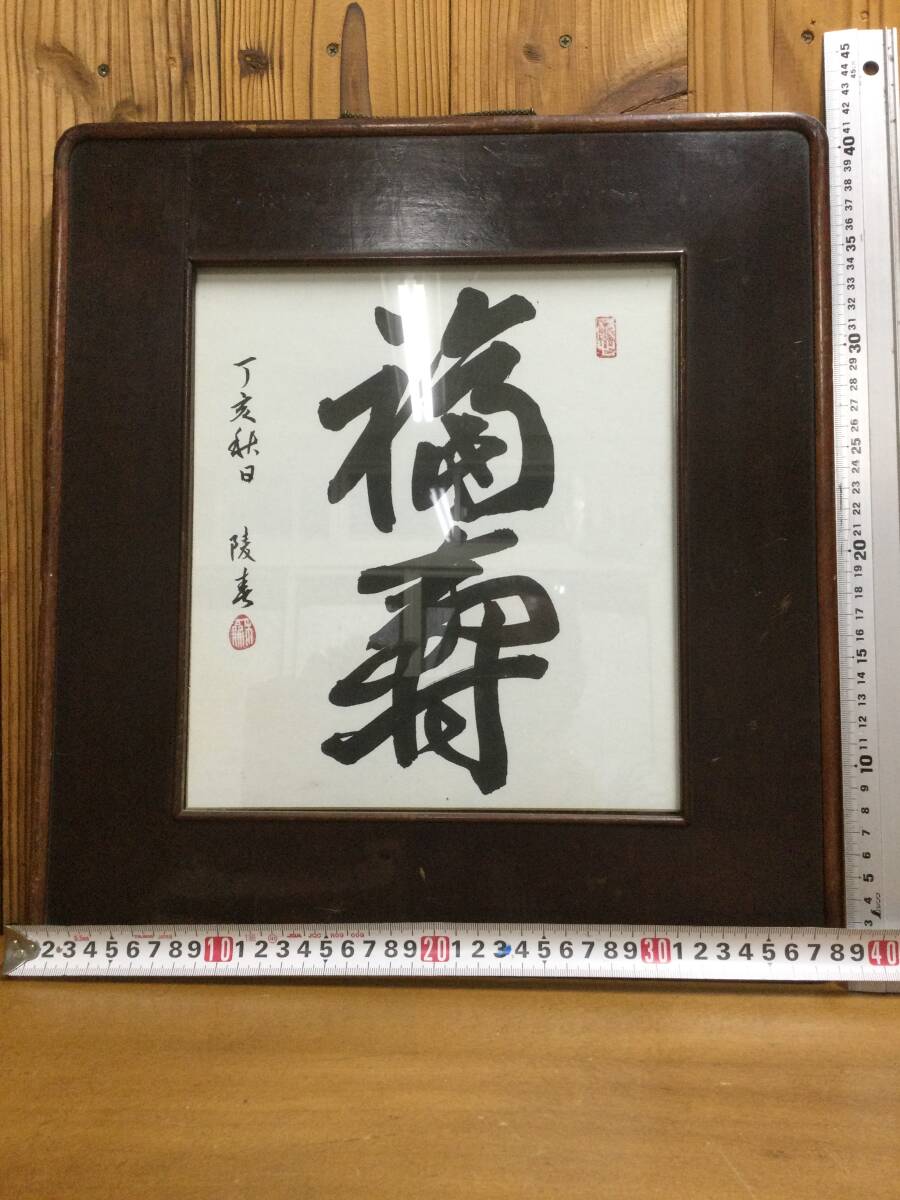 福壽
丁亥秋日 陵春
45
44
43
42
41
40
39
38
37
36
35
34
33
32
31
30
29
28
27
26
25
24
23
22
21
20
19
18
17
16
15
14
13
12
11
10
9
8
7
6
5
4
3
シンワ
2 3 4 5 6 7 8 9 10 1 2 3 4 5 6 7 8 9 20 1 2 3 4 5 6 7 8 9 30 1 2 3 4 5 6 7 8 9 40